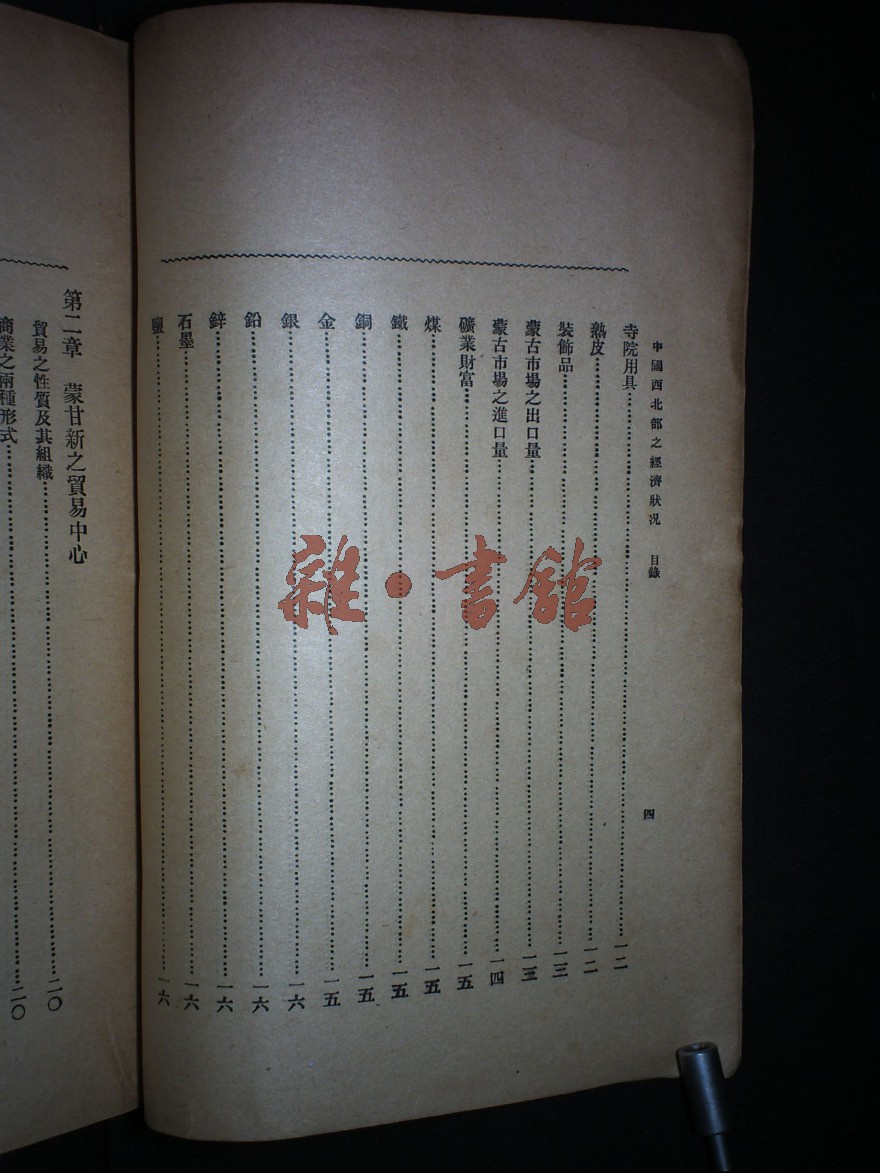 中國西北部之經濟狀況 目錄 四
寺院用具 一二
熟皮 一二
裝飾品 一三
蒙古市場之出口量 一三
蒙古市場之進口量 一四
礦業財富 一五
煤 一五
鐵 一五
銅 一五
金 一五
銀 一六
鉛 一六
鋅 一六
石墨 一六
鹽 一六
第二章 蒙甘新之貿易中心
貿易之性質及其組織 二〇
商業之兩種形式 二〇
雜·書館